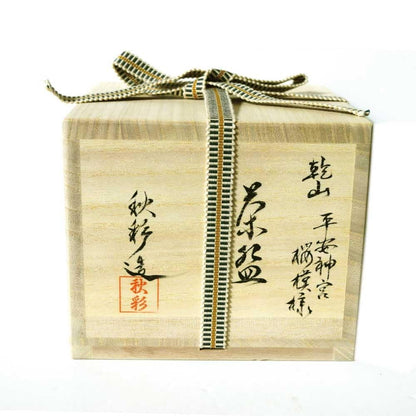 乾山 平安神宮
桜模様
茶盌
秋彩造
秋彩